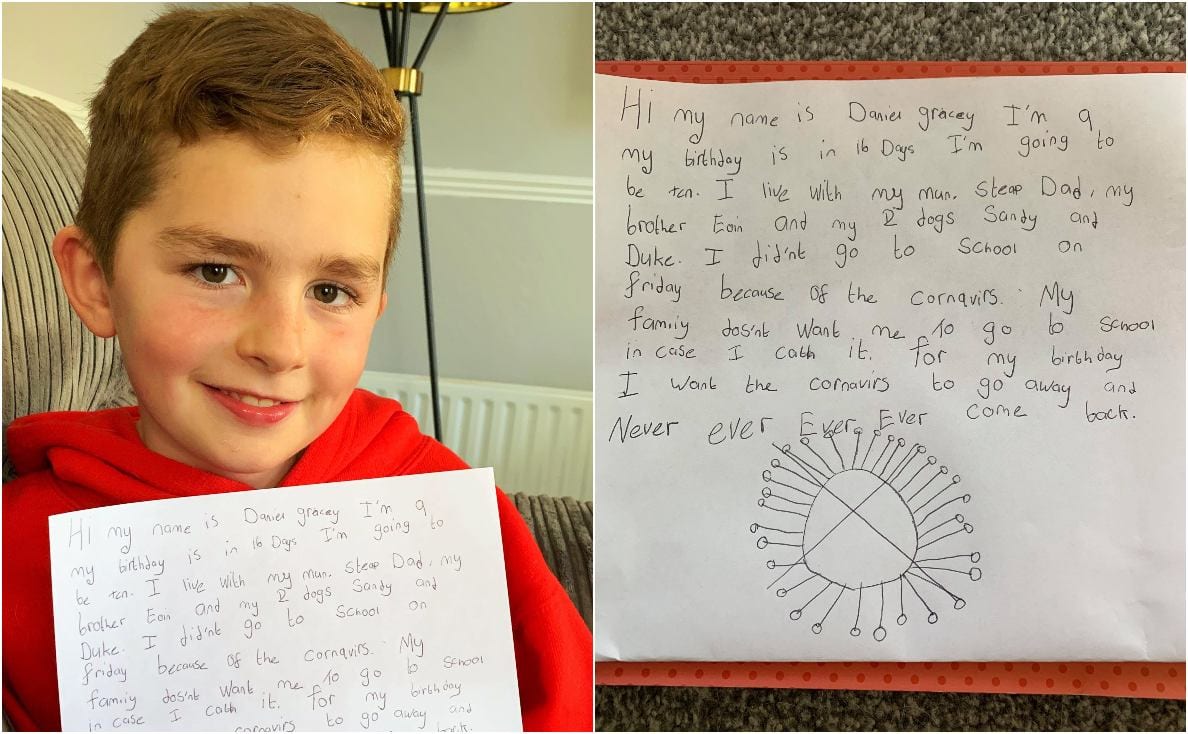 Hi my name is Daniel gracey I'm 9
my birthday is in 16 Days I'm going to
be ten. I live with my mum. Steap Dad, my
brother Eoin and my 2 dogs Sandy and
Duke. I did'nt go to School on
friday because of the cornavirs. My
family dos'nt want me to go to school
in case I cath it. for my birthday
cornavirs to go away and
back.
Hi my name is Daniel gracey I'm 9
my birthday is in 16 Days I'm going to
be ten. I live with my mum. Steap Dad, my
brother Eoin and my 2 dogs Sandy and
Duke. I did'nt go to School on
friday because of the cornavirs. My
family dos'nt want me to go to school
in case I cath it. for my birthday
I want the cornavirs to go away and
Never ever Ever Ever come back.